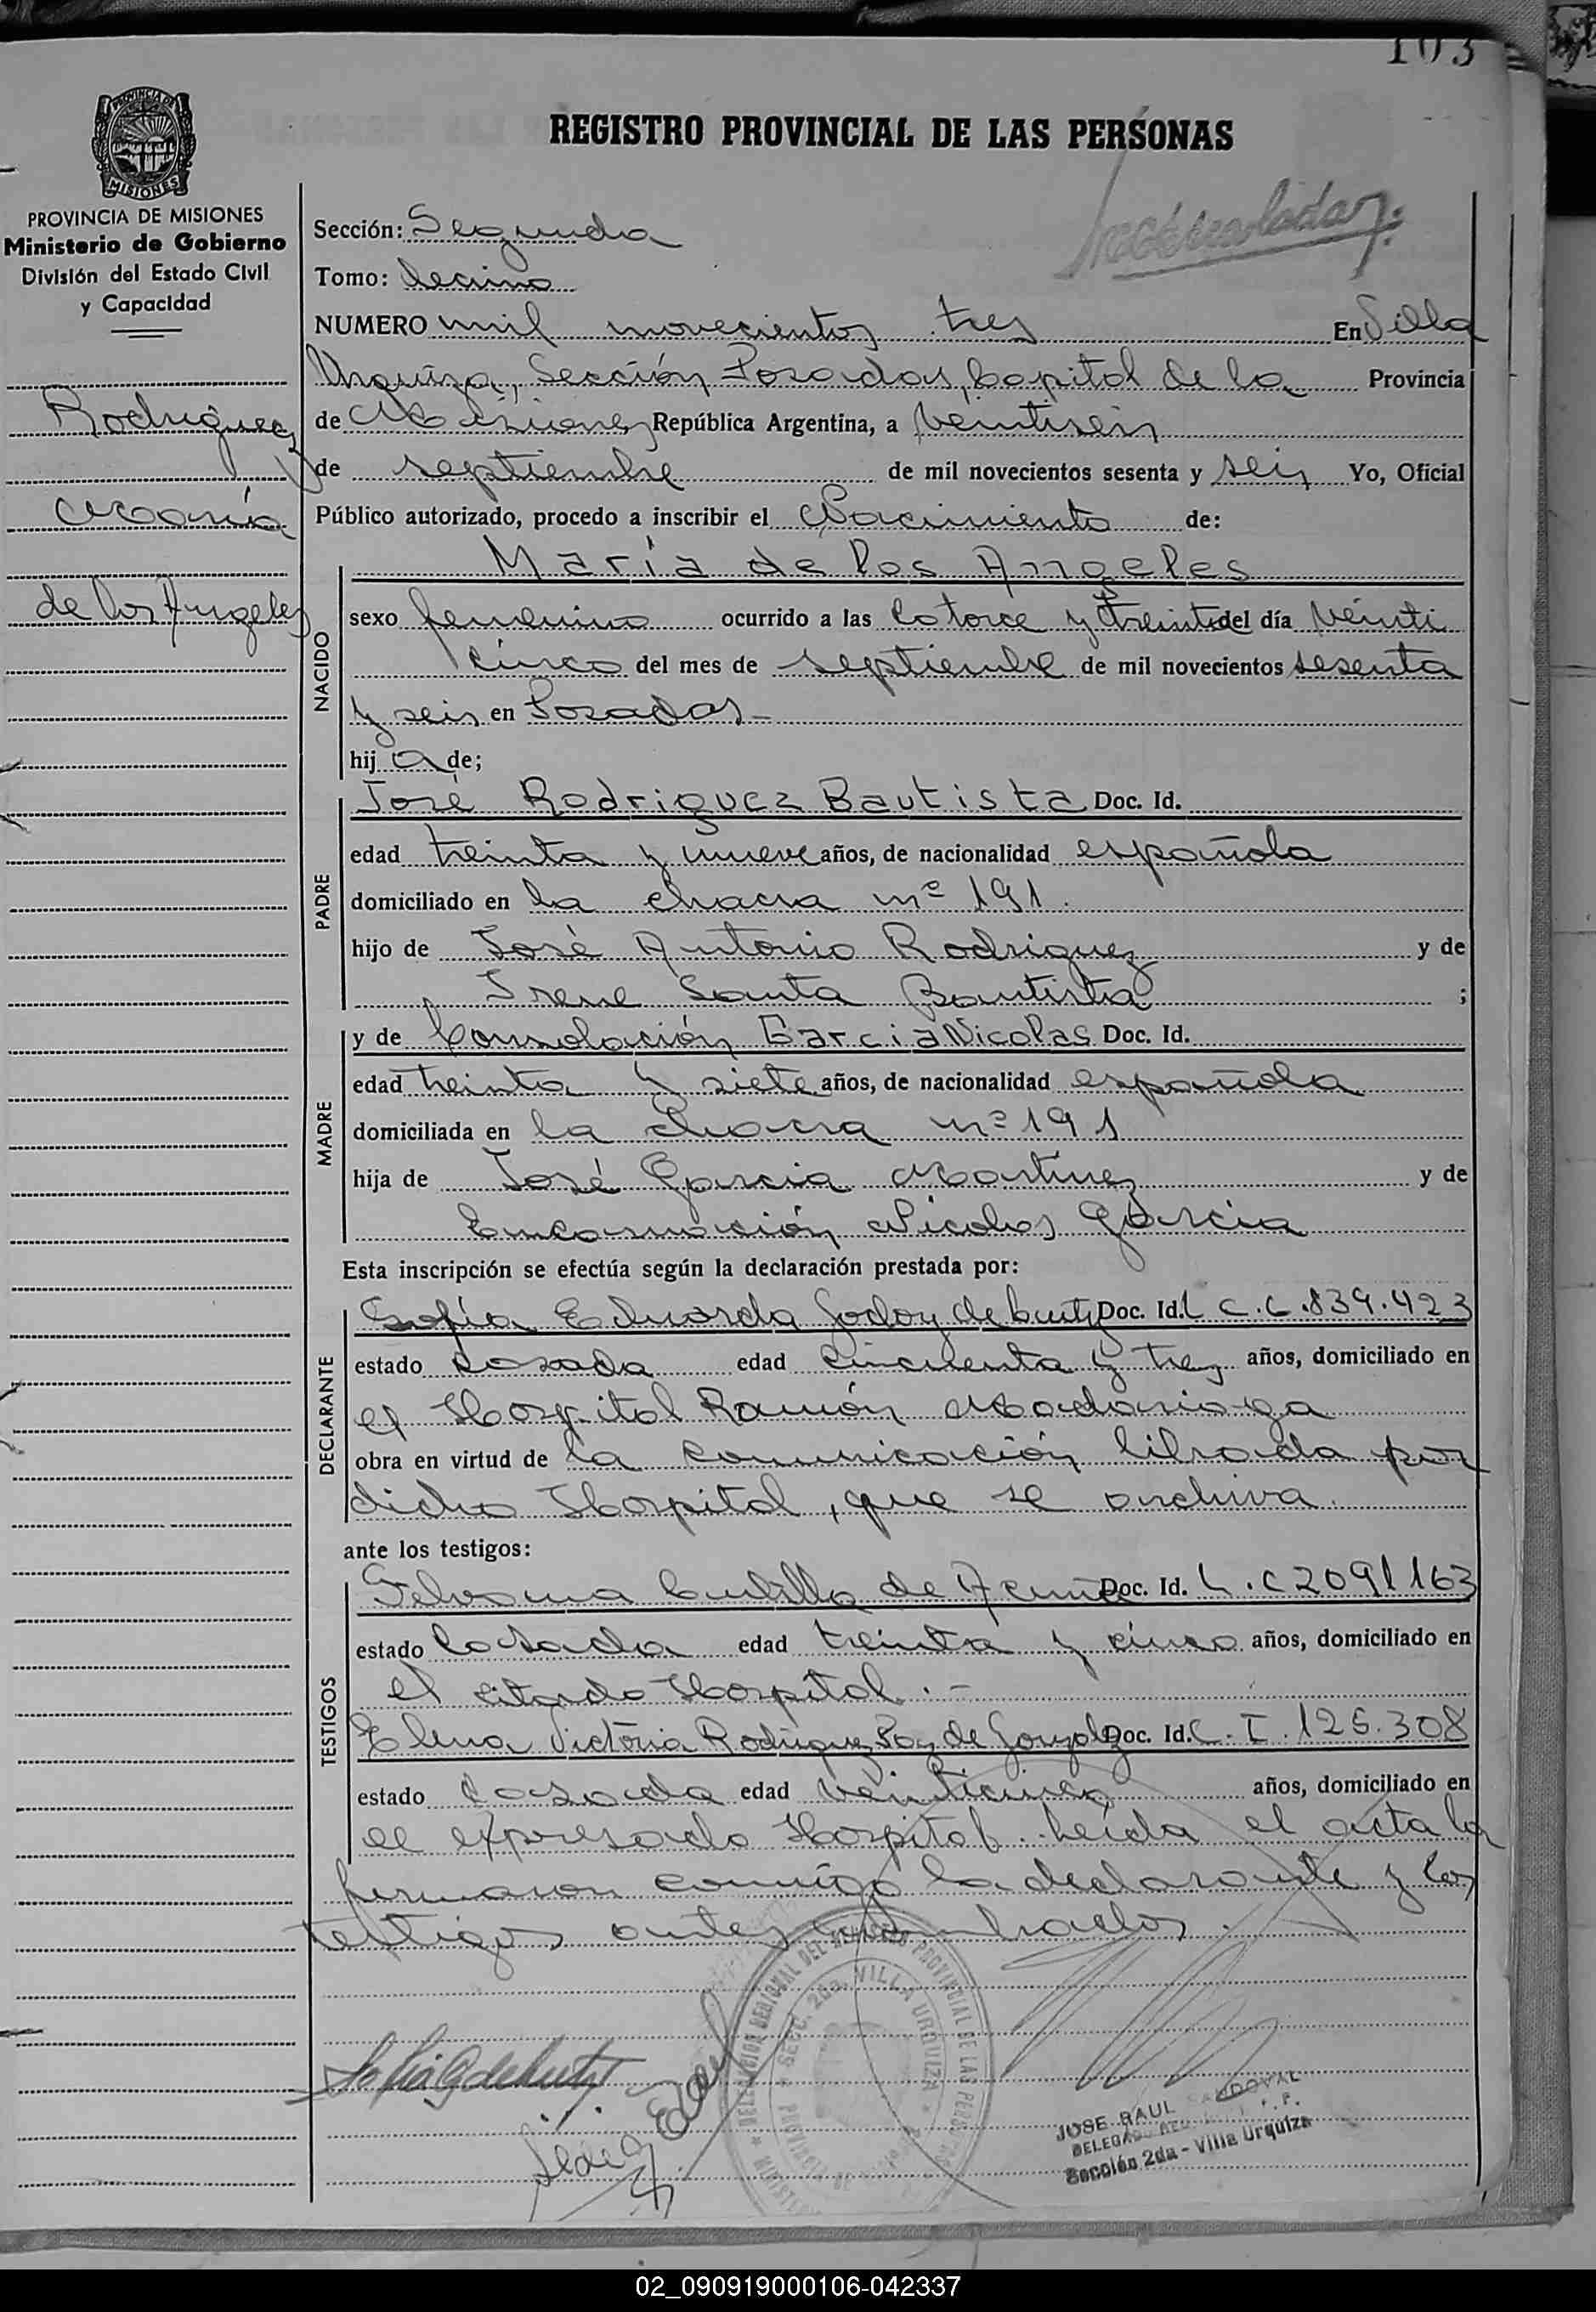 103
REGISTRO PROVINCIAL DE LAS PERSONAS
PROVINCIA DE MISIONES
Ministerio de Gobierno
División del Estado Civil
y Capacidad
Rodriguez
María
de los Angeles
Sección: Segunda
Tomo: Decimo
NUMERO mil novecientos tres En Villa
Urquiza, Sección Posadas, Capital de la Provincia
de Misiones República Argentina, a veintiseis
de septiembre de mil novecientos sesenta y seis Yo, Oficial
Público autorizado, procedo a inscribir el Nacimiento de:
NACIDO
María de los Angeles
sexo femenino ocurrido a las Catorce y treinta del día veinti
cinco del mes de septiembre de mil novecientos sesenta
y seis en Posadas.-
hij a de;
PADRE
José Rodriguez Bautista Doc. Id.
edad treinta y nueve años, de nacionalidad española
domiciliado en la chacra nº 191.
hijo de José Antonio Rodriguez y de
Irene Santa Bautista ;
MADRE
y de Consolación Garcia Nicolas Doc. Id.
edad treinta y siete años, de nacionalidad española
domiciliada en la chacra nº 191
hija de José Garcia Martinez y de
Encarnación Nicolas Garcia
Esta inscripción se efectúa según la declaración prestada por:
DECLARANTE
Sofía Eduarda Godoy de Doc. Id. L C. 6.839.423
estado casada edad cincuenta y tres años, domiciliado en
el Hospital Ramón Madariaga
obra en virtud de la comunicación librada por
dicho Hospital, que se archiva.
ante los testigos:
TESTIGOS
de Acuña Doc. Id. L.C 2091163
estado Casada edad treinta y cinco años, domiciliado en
el citado Hospital.-
Elena Victoria Rodriguez Paz de Gonzalez Doc. Id. C. I. 125.308
estado Casada edad veinticinco años, domiciliado en
el expresado Hospital. Leída el acta la
firmaron conmigo la declarante y los
testigos antes nombrados.
DELEGACION REGIONAL DEL REGISTRO PROVINCIAL DE LAS PERSONAS
SECC. 2da. VILLA URQUIZA
JOSE RAUL SANDOVAL
Sección 2da - Villa Urquiza
02_090919000106-042337